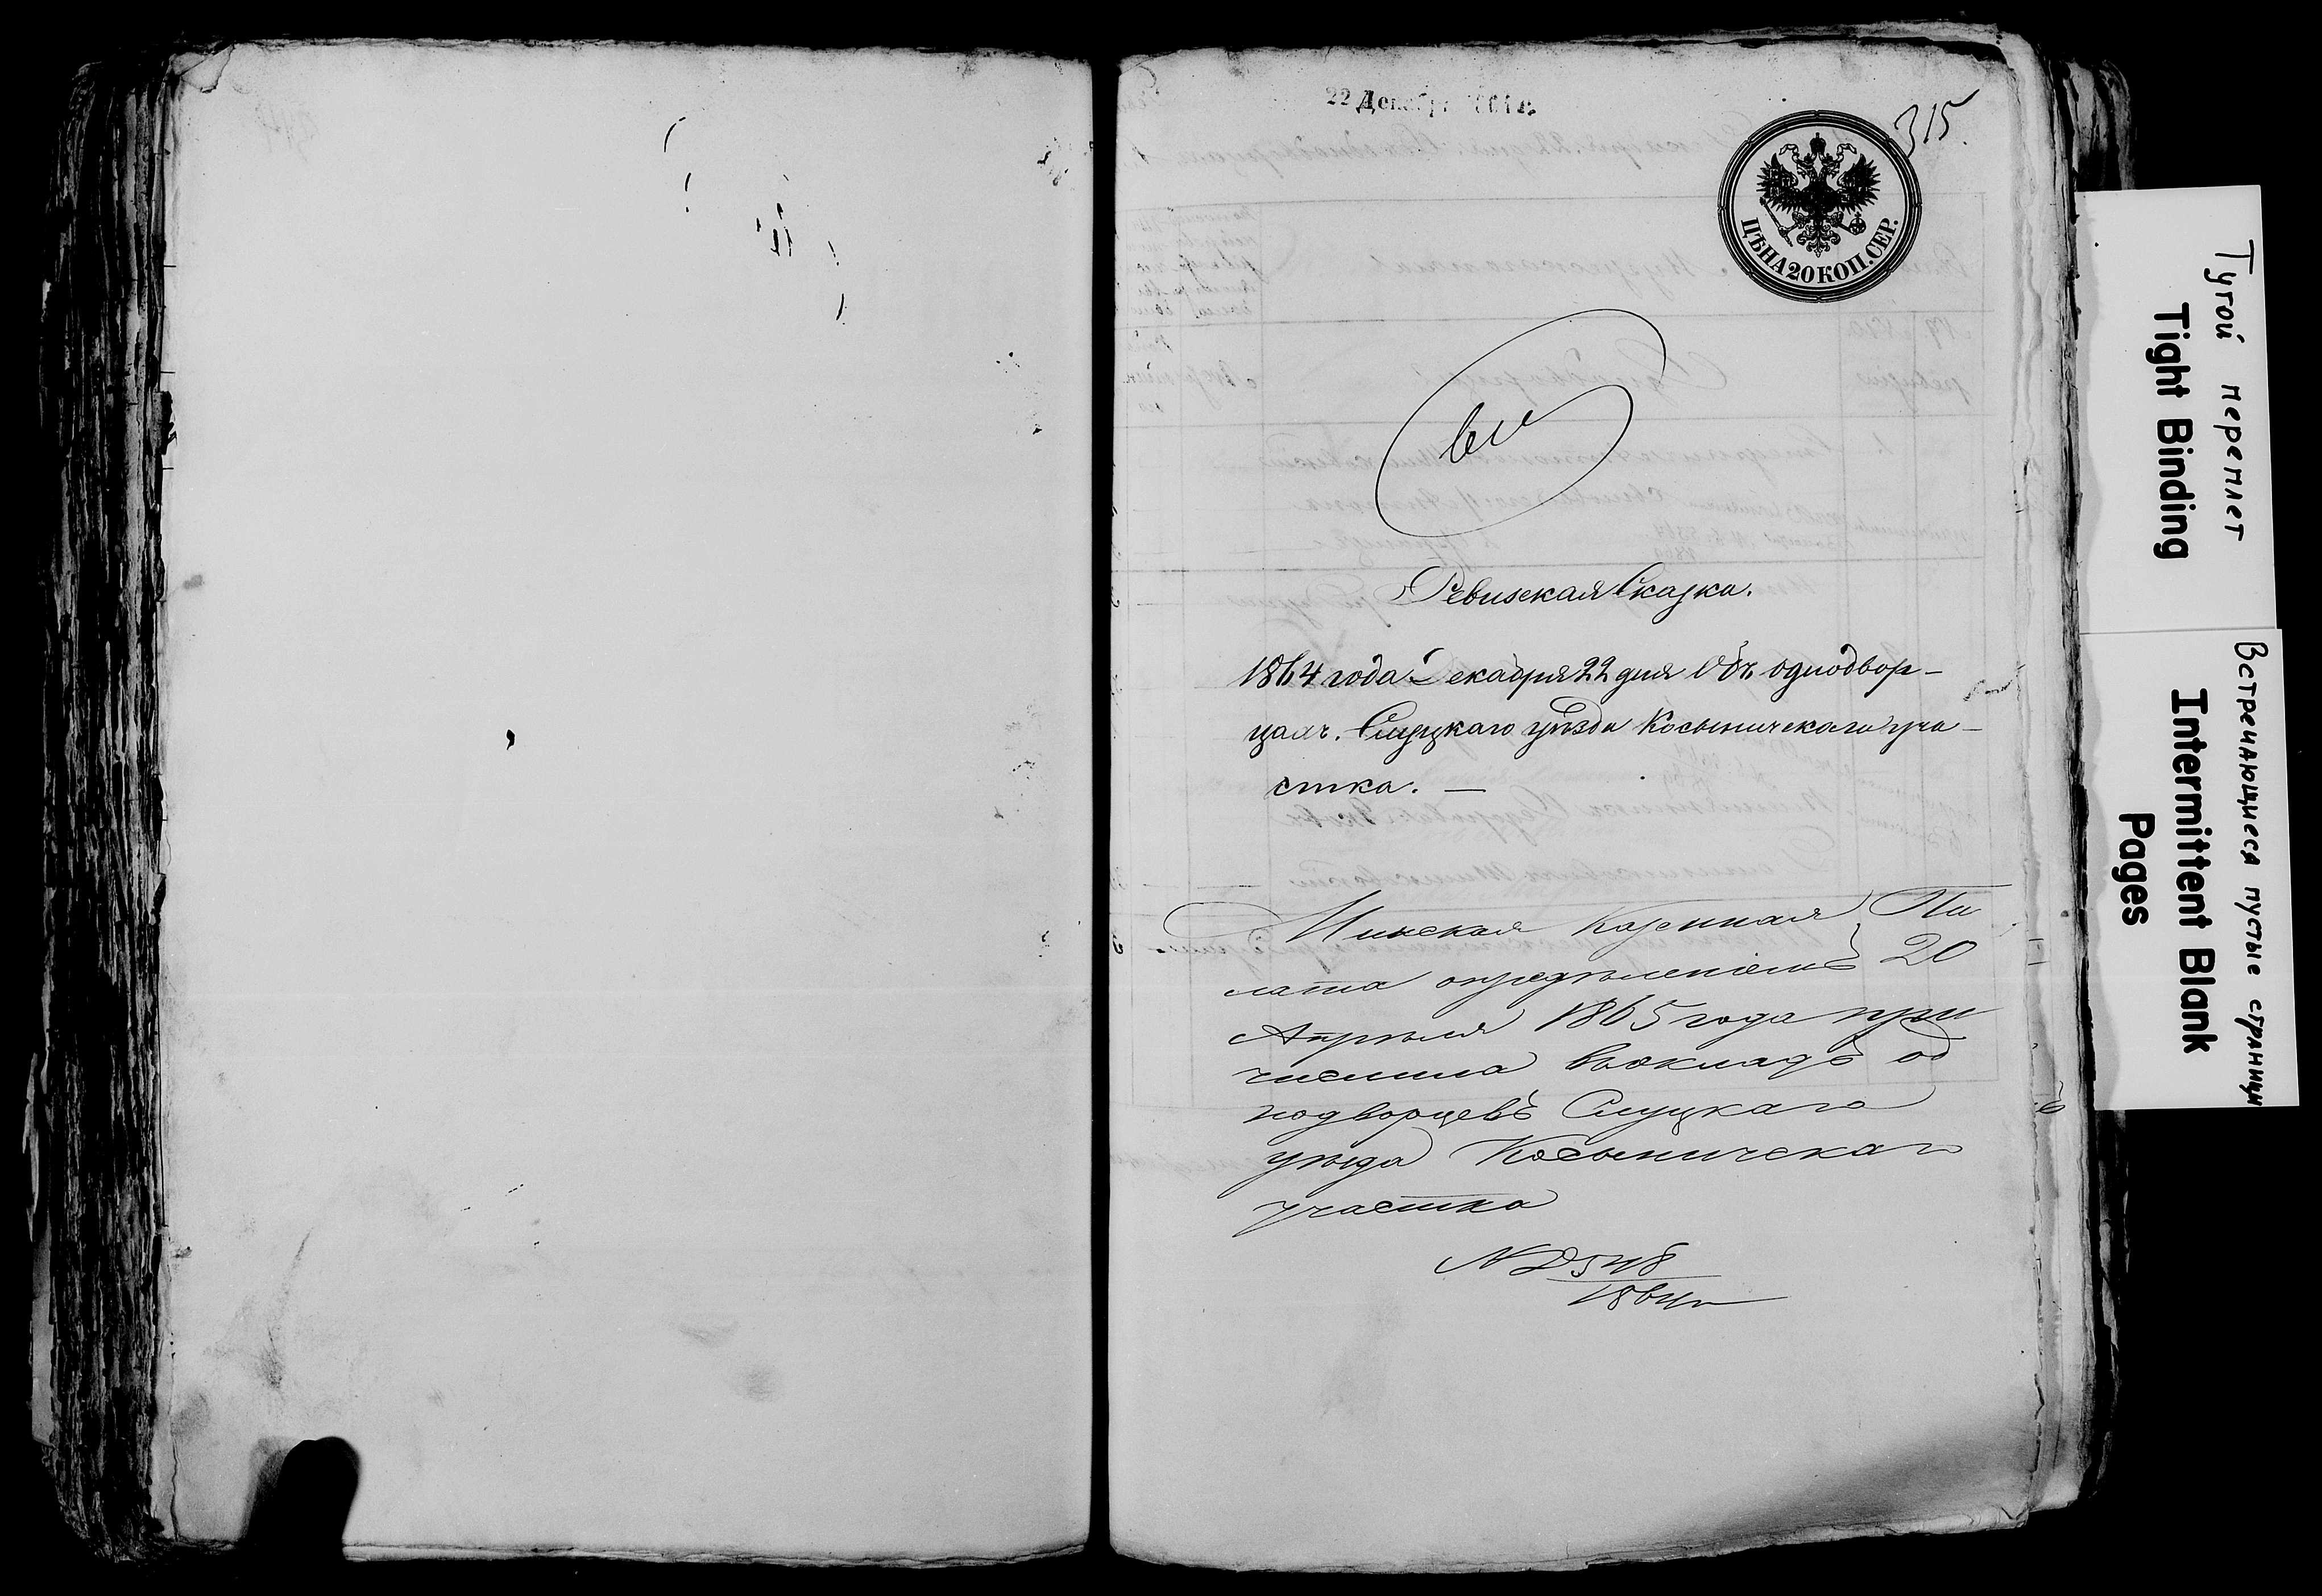 22 Декабря 1864 г.
315.
ЦѢНА 20 КОП. СЕР.
Ревизская Сказка.
1864 года Декабря 22 дня Объ однодвор-
цахъ. Слуцкаго уѣзда Косыничскаго уча-
стка. —
Минская Казенная Па
лата опредѣленіемъ 20
Апрѣля 1865 года при
числила въ окладъ од
нодворцевъ Слуцкаго
уѣзда Косыничскаго
участка
№ 2548
1864 г
Тугой переплет
Tight Binding
Встречающиеся пустые страницы
Intermittent Blank
Pages